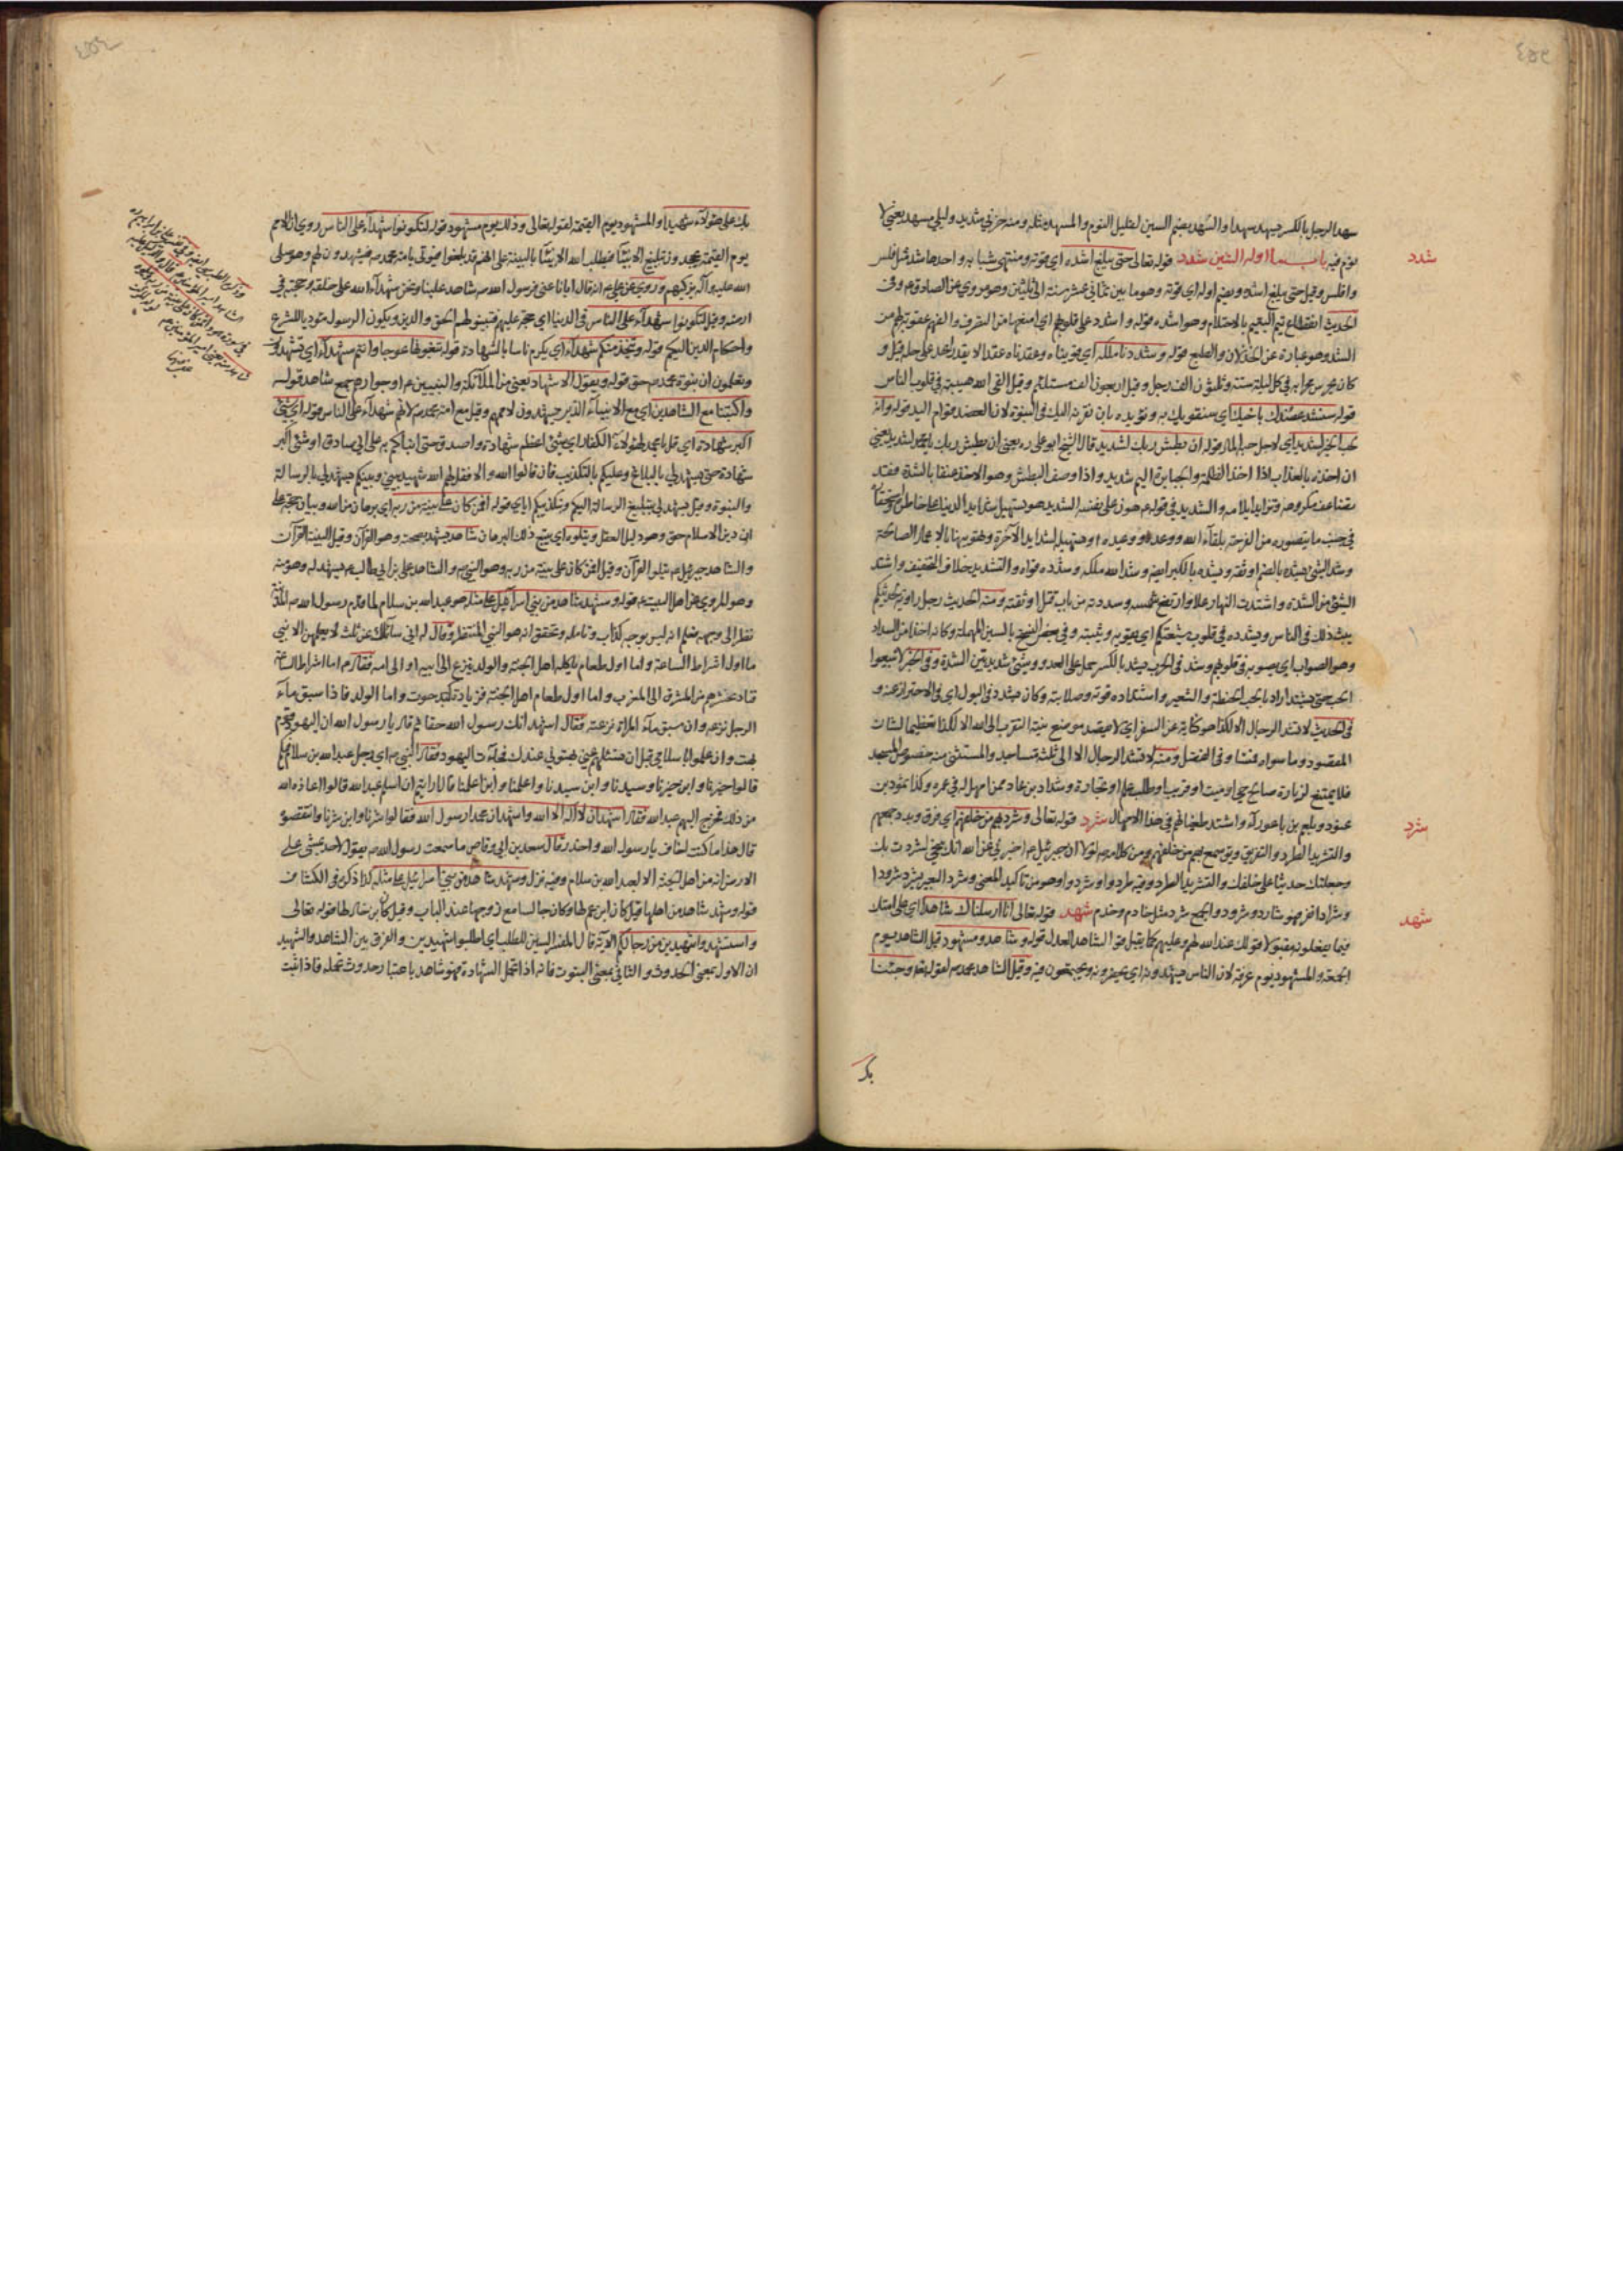 سهد الرجل بالكسر يسهد سهدا والسهد بضم السين لقليل النوم والمسهد مثله ومنه حزني شديد وليلي مسهد يعني لا
نوم فيه باب ما اوله الشين شدد قوله تعالى حتى يبلغ اشده اي قوته ومنتهى شبابه واحدها شد مثل فلس
شدد
وافلس وقيل حتى يبلغ اشده وبضم اوله اي قوته وهو ما بين ثماني عشر سنة الى ثلثين وهو مروي عن الصادق ع وفي
الحديث انقطاع يتم اليتيم بالاحتلام وهو اشده قوله واشدد على قلوبهم اي امنعها من التصرف والفهم عقوبة لهم من
الشد وهو عبارة عن الخذلان والطبع قوله وشددنا ملكه اي قويناه وعقدناه عقدا لا يقدر احد على حله قيل و
كان يحرس محرابه في كل ليلة ستة وثلثون الف رجل وقيل اربعون الف مستلئم وقيل القى الله هيبته في قلوب الناس
قوله سنشد عضدك باخيك اي سنقويك به ونؤيده بان نقرنه اليك في النبوة لان العضد قوام اليد قوله وانه
لحب الخير لشديد اي لاجل حب المال قوله ان بطش ربك لشديد قال الشيخ ابو علي ره يعني ان بطش ربك يا محمد لشديد يعني
ان اخذه بالعذاب اذا اخذ الظلمة والجبابرة اليم شديد واذا وصف البطش وهو الاخذ عنفا بالشدة فقد
تضاعف مكروهه وتزايد ايلامه والتشديد في قوله هون على نفسه الشديد هو تسهيل شدايد الدنيا على خاطره
في جنب ما يتصوره من الفرحة بلقاء الله ووعده ووعيده او تسهيل لشدايد الآخرة وتهوينها بالاعمال الصالحة
وشد الشيء يشده بالضم اوثقه ويشده بالكسر ايضا وشد الله ملكه وشدده قواه والتشديد خلاف التخفيف واشتد
الشيء من الشدة واشتدت النهار علا وارتفع شمسه وشددته من باب قتل اوثقته ومنه الحديث رجل راوية لحديثكم
يبث ذلك في الناس ويشدده في قلوب شيعتكم اي يقويه ويثبته وفي بعض النسخ بالسين المهملة وكانه اخذا من السداد
وهو الصواب اي يصوبه في قلوبهم وشد في الحرب يشد بالكسر حمل على العدو وشيء شديد بين الشدة وفي الخبر لا تبيعوا
الحب حتى يشتد اراد بالحب الحنطة والشعير واشتداده قوته وصلابته وكان يشدد في البول اي في الاحتراز عنه و
في الحديث لا تشد الرحال الا لكذا هو كناية عن السفر اي لا يقصد موضع بنية التقرب الى الله الا لكذا تعظيما لشان
المقصود وما سواه مثله في الفضل ومثله لا تشد الرحال الا الى ثلثة مساجد والمستثنى منه خصوص المسجد
فلا يمتنع لزيارة صالح حي او ميت او قريب او طلب علم او تجارة وشداد بن عاد ممن امهل له في عمره وكذا نمود بن
عنود وبلعم بن باعوراء واشتد طغيانهم في هذا الامهال شرد قوله تعالى وشرد بهم من خلفهم اي فرق وبدد جمعهم
شرد
والتشريد الطرد والتفريق وبق سمع بهم من خلفهم ومن كلامه لولا ان جبرئيل ع اخبرني عن الله انك سخي لشردت بك
وجعلتك حديثا على خلفك والتشريد الطرد وفيه طردوا وشردوا وهو من تاكيد المعنى وشرد البعير يشرد شرودا
وشرادا نفر فهو شارد وشرود والجمع شرد مثل خادم وخدم شهد قوله تعالى انا ارسلناك شاهدا اي على امتك
شهد
فيما يفعلونه مقبولا قولك عند الله لهم وعليهم كما يقبل قول الشاهد العدل قوله وشاهد ومشهود قيل الشاهد يوم
الجمعة والمشهود يوم عرفة لان الناس يشهدونه اي يحضرونه ويجتمعون فيه وقيل الشاهد محمد لقوله تعالى وجئنا
بك
بك على هؤلاء شهيدا والمشهود يوم القيمة لقوله تعالى وذلك يوم مشهود قوله لتكونوا شهداء على الناس روي ان الامم
يوم القيمة يجحدون تبليغ الانبياء فيطلب الله الانبياء بالبينة على انهم قد بلغوا فيؤتى بامة محمد ص فيشهدون لهم وهو صلى
الله عليه وآله يزكيهم وروي عن علي ع انه قال ايانا عنى فرسول الله ص شاهد علينا ونحن شهداء الله على خلقه وحجته في
ارضه وقيل لتكونوا شهداء على الناس في الدنيا اي حجة عليهم فتبينوا لهم الحق والدين ويكون الرسول مؤديا للشرع
واحكام الدين اليكم قوله ويتخذ منكم شهداء اي يكرم ناسا بالشهادة قوله تبغونها عوجا وانتم شهداء اي تشهدون
وتعلمون ان نبوة محمد ص حق قوله ويقول الاشهاد يعني من الملائكة والنبيين ع او جوارحهم جمع شاهد قوله
واكتبنا مع الشاهدين اي مع الانبياء الذين يشهدون لاممهم وقيل مع امة محمد ص لانهم شهداء على الناس قوله اي شيء
اكبر شهادة اي قل يا محمد لهؤلاء الكفار اي شيء اعظم شهادة واصدق حتى انبأكم به على اني صادق او شيء اكبر
شهادة حتى يشهد لي بالبلاغ وعليكم بالتكذيب فان قالوا الله والا فقل لهم الله شهيد بيني وبينكم يشهد لي بالرسالة
والنبوة وقيل يشهد لي بتبليغ الرسالة اليكم وتكذيبكم اياي قوله افمن كان على بينة من ربه اي برهان من الله وبيان حجة على
ان دين الاسلام حق وهو دليل العقل ويتلوه اي يتبع ذلك البرهان شاهد يشهد بصحته وهو القرآن وقيل البينة القرآن
والشاهد جبرئيل ع يتلوا القرآن وقيل افمن كان على بينة من ربه وهو النبي ص والشاهد علي بن ابي طالب ع يشهد له وهو منه
وهو المروي عن اهل البيت ع قوله وشهد شاهد من بني اسرائيل على مثله هو عبد الله بن سلام لما قدم رسول الله ص المدينة
نظر الى وجهه فعلم انه ليس بوجه كذاب وتامله وتحقق انه هو النبي المنتظر وقال له اني سائلك عن ثلث لا يعلمهن الا نبي
ما اول اشراط الساعة وما اول طعام ياكله اهل الجنة والولد ينزع الى ابيه او الى امه فقال ع اما اشراط الساعة
فنار تحشرهم من المشرق الى المغرب واما اول طعام اهل الجنة فزيادة كبد حوت واما الولد فاذا سبق ماء
الرجل نزعه وان سبق ماء المراة نزعته فقال اشهد انك رسول الله حقا ثم قال يا رسول الله ان اليهود قوم
بهت وان علموا باسلامي قبل ان تسئلهم عني بهتوني عندك فجاءت اليهود فقال النبي ص اي رجل عبد الله بن سلام فيكم
قالوا خيرنا وابن خيرنا وسيدنا وابن سيدنا واعلمنا وابن اعلمنا قال ارايتم ان اسلم عبد الله قالوا اعاذه الله
من ذلك فخرج اليهم عبد الله فقال اشهد ان لا اله الا الله واشهد ان محمدا رسول الله فقالوا شرنا وابن شرنا وانتقصوه
قال هذا ما كنت اخاف يا رسول الله واحذر قال سعد بن ابي وقاص ما سمعت رسول الله ص يقول لاحد يمشي على
الارض انه من اهل الجنة الا لعبد الله بن سلام وفيه نزل وشهد شاهد من بني اسرائيل على مثله كذا ذكره في الكشاف
قوله وشهد شاهد من اهلها قيل كان ابن عم لها وكان جالسا مع زوجها عند الباب وقيل كان ابن خال لها قوله تعالى
واستشهدوا شهيدين من رجالكم الآية قال المفسر السين للطلب اي اطلبوا شهيدين والفرق بين الشاهد والشهيد
ان الاول بمعنى الحدوث والثاني بمعنى الثبوت فانه اذا تحمل الشهادة فهو شاهد باعتبار حدوث تحمله فاذا ثبت